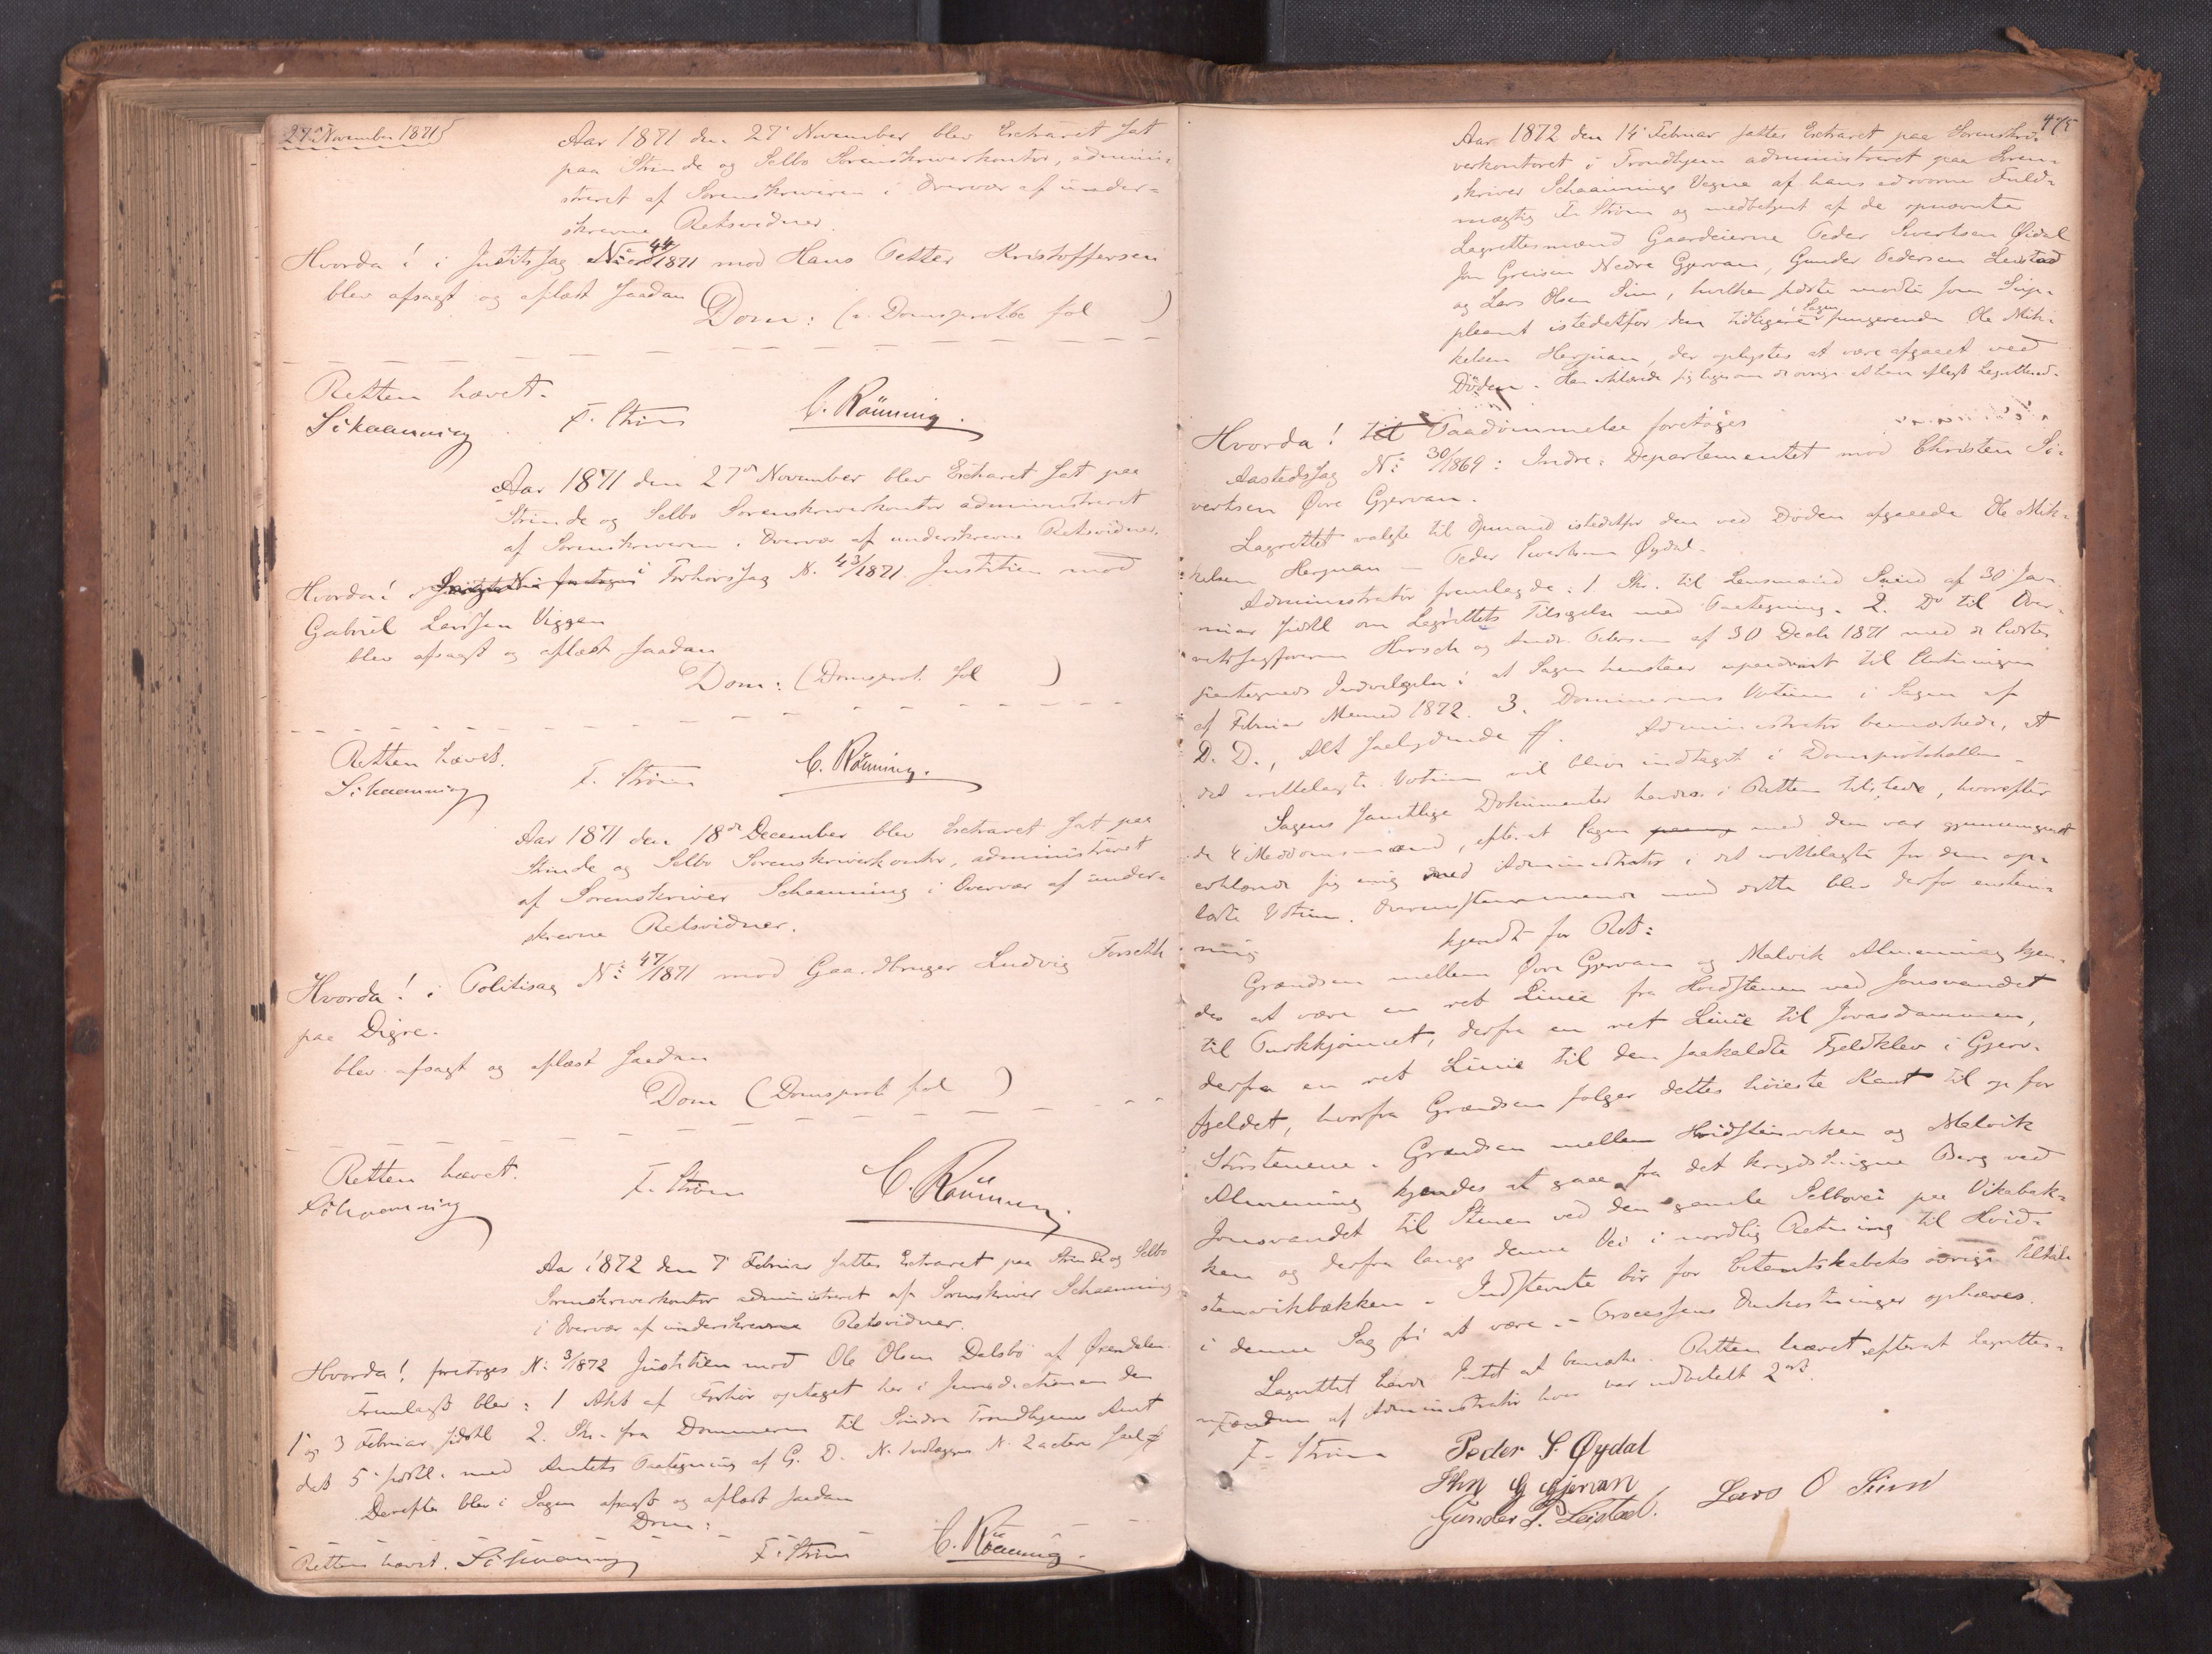 27 November 1871
Aar 1871 den 27' November blev Extraret sat
paa Strinde og Selbo Sorenskriverkontor, admini-
streret af Sorenskriveren i Overvær af under-
skrevne Retsvidner.
Hvorda! i Justitssag No 44/1871 mod Hans Petter Kristoffersen
blev afsagt og oplæst saadan
Dom: (Domsprotk fol )
Retten hævet.
Schaanning F. Strøm C. Rönning.
Aar 1871 den 27de November blev Extraret sat paa
Strinde og Selbo Sorenskriverkontor administreret
af Sorenskriveren i Overvær af underskrevne Retsvidner.
Hvorda! i Forhörssag N. 43/1871 Justitien mod
Gabriel Larssen Viggen
blev afsagt og oplæst saadan
Dom: (Domsprot. fol )
Retten hævet.
Schaanning F. Strøm C. Rönning.
Aar 1871 den 18de December blev Extraret sat paa
Strinde og Selbo Sorenskriverkontor, administreret
af Sorenskriver Schaanning i Overvær af under-
skrevne Retsvidner.
Hvorda! i Politisag No 47/1871 mod Gaardbruger Ludvig Forseth
paa Digre.
blev afsagt og oplæst saadan
Dom (Domsprot fol )
Retten hævet.
Schaanning F. Strøm C. Rönning.
Aar 1872 den 7' Februar sattes Extraret paa Strinde og Selbo
Sorenskriverkontor administreret af Sorenskriver Schaanning
i Overvær af underskrevne Retsvidner.
Hvorda! foretoges N: 3/1872 Justitien mod Ole Olsen Dalsbö af Ørendalen
Fremlagt blev: 1 Akt af Forhör optaget her i Jurisdictionen den
1' og 3 Februar sidstl 2. Skr. fra Dommeren til Söndre Trondhjems Amt
dat 5' sidstl. med Amtets Paategning af G. D. N. 1 indlægges N. 2 acten
Derefter blev i Sagen afsagt og oplæst saadan
Dom:
Retten hævet. Schaanning F. Strøm C. Rönning.
475
Aar 1872 den 14' Februar sattes Extraret paa Sorenskri-
verkontoret i Trondhjem administreret paa Soren-
skriver Schaannings Vegne af hans edsvorne Fuld-
mægtig F. Strøm og medbetjent af de opnævnte
Lagrettesmænd Gaardeierne Peder Sivertsen Øidal
Jon Greisen Nedre Gjervan, Gunder Pedersen Leistad
og Lars Olsen Siun, hvilken sidste mødte som Sup-
pleant istedetfor den tidligere i Sagen fungerende Ole Mik-
kelsen Herjuan, der oplystes at være afgaaet ved
Döden. Han erklærede sig ligesom de övrige at have aflagt Lagrettesed.
Hvorda! til Paadömmelse foretoges
Aastedssag No 30/1869: Indre-Departementet mod Christen Si-
vertsen Øvre Gjervan.
Lagrettet valgte til Formand istedetfor den ved Döden afgaaede Ole Mik-
kelsen Herjuan Peder Sivertsen Øydal.
Administrator fremlagde: 1 Skr. til Lensmand af 30 Ja-
nuar sidstl om Lagrettets Tilsigelse med Paategning. 2. Do til Over-
retssagförerne Hirsch og Andr. Petersen af 30 Decbr 1871 med de Sidstes
paategnede Indvilgelse i at Sagen henstaar upaadömt til Slutningen
af Februar Maaned 1872. 3. Dommerens Votum i Sagen af
D. D., Alt saalydende ff. Administrator bemærkede, at
det irettelagte Votum vil blive indtaget i Domsprotokollen
Sagens samtlige Dokumenter havdes i Retten tilstede, hvorefter
de 4 Meddomsmænd, efterat Sagen med dem var gjennemgaaet
erklærede sig enig med Administrator i det irettelagte for dem op-
læste Votum. Overensstemmende med dette blev derfor enstem-
mig kjendt for Ret:
Grændsen mellem Øvre Gjervan og Malvik Almenning kjen-
des at være en ret Linie fra Hvidstenen ved Jonsvandet
til Purkkjönnet, derfra en ret Linie til Jovasdammen,
derfra en ret Linie til den saakaldte Fjeldklev i Gjerv-
fjeldet, hvorfra Grændsen fölger dettes höieste Kant til op for
Storstenene. Grændsen mellem Hvidstensviken og Malvik
Almenning kjendes at gaae fra det Berg ved
Jonsvandet til Stenen ved den gamle Selbovei paa Vikabak-
ken og derfra langs denne Vei i nordlig Retning til Hvid-
stensvikbækken. Indstevnte bör for Citantskabets övrige Tiltale
i denne Sag fri at være. Processens Omkostninger ophæves.
Lagrettet havde Intet at bemærke. Retten hævet efterat Lagrettes-
mændene af Administrator hver var udbetalt 2
F. Strøm Peder S. Øydal
Jhn G Gjervan Lars O Siun
Gunder P. Leistad.